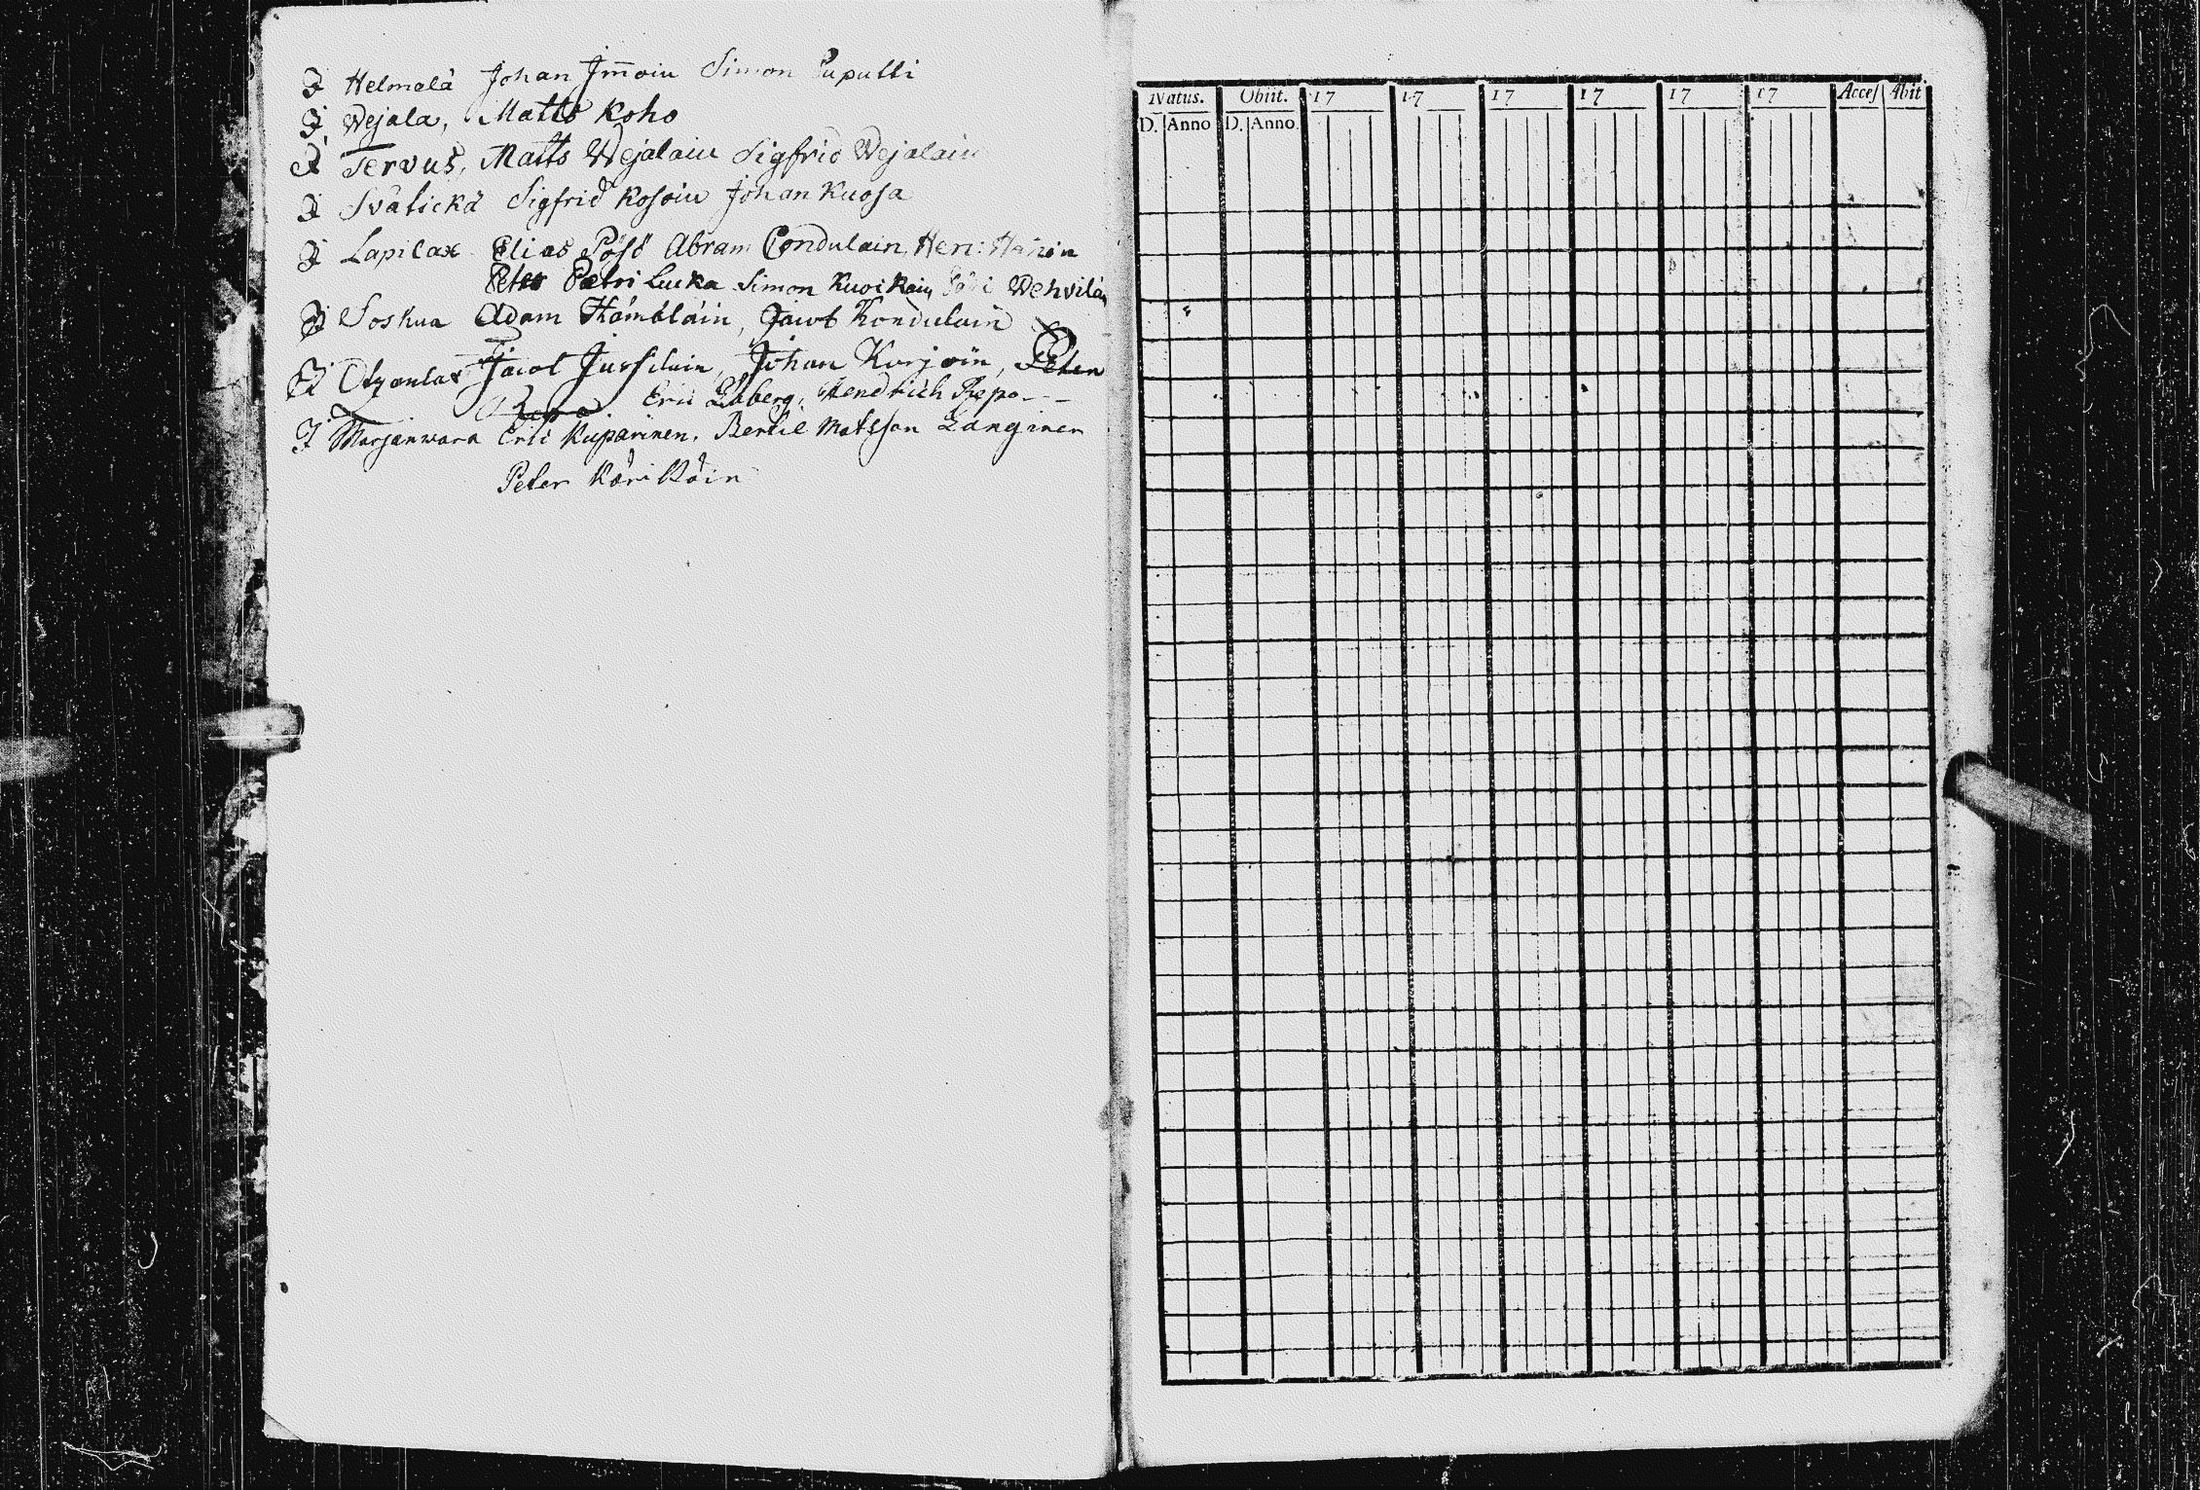 J Helmälä Johan Jm̄oin Simon Puputti
J Wejala, Matts Koho
J Tervus, Matts Wejalain Sigfrid Wejalain
J Svätickä Sigfrid Kosoin Johan Kuosa
J Lapilax Elias Pösö Abram Condulain, Hen:
Peter Pætri Lucka Simon Kuoikain Wehviläin
J Soskua Adam Hämäläin, Jacob Kondulain
J Otzanlax Jacob Jussilain, Johan Kurjoin, Peter
Repo Eric Edberg, Hendrich Repo - - -
J Marjanwara Eric Kuparinen, Bertil Matsson Langinen
Peter Käri Käin
Natus. Obiit. 17 17 17 17 17 17 Access Abit
D. Anno D. Anno.